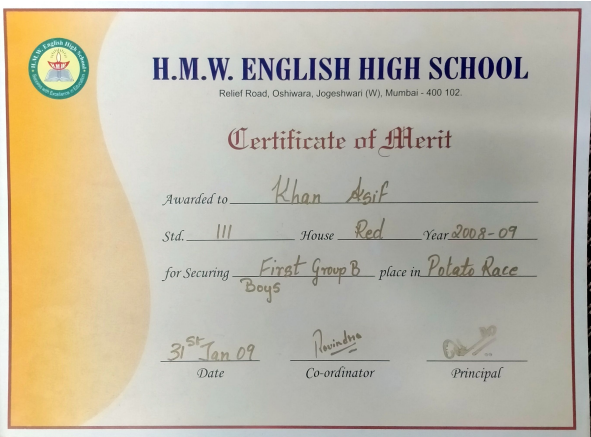 H.M.W. English High School
H.M.W. ENGLISH HIGH SCHOOL
Relief Road, Oshiwara, Jogeshwari (W), Mumbai - 400 102.
Certificate of Merit
Awarded to Khan Asif
Std. III House Red Year 2008-09
for Securing First Group B place in Potato Race
Boys
31st Jan 09 Ravindra
Date Co-ordinator Principal